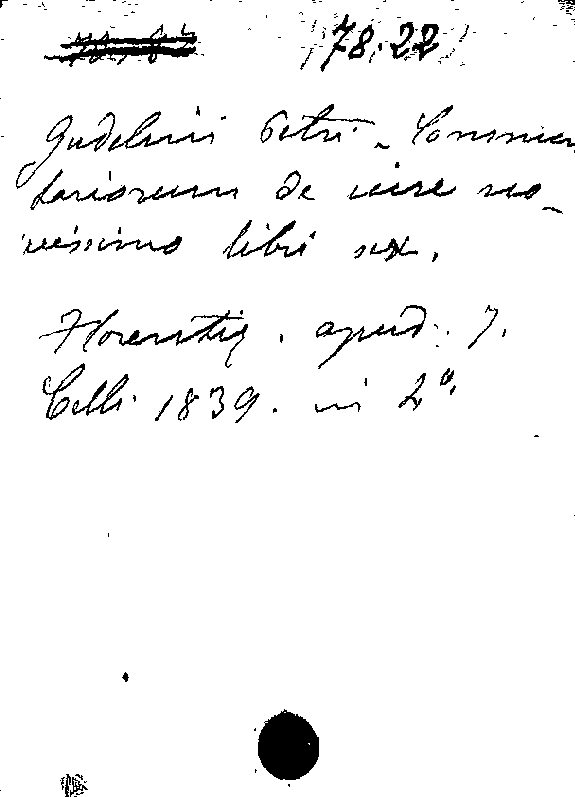 78.22
Gudelini Petri - Commen
tariorum de iure no_
vissimo libri sex.
Florentiæ. apud. J.
Celli 1839. in 2°.